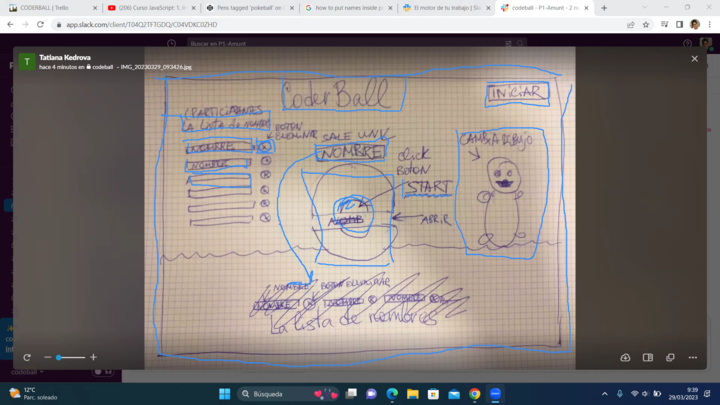 CODERBALL | Trello
(206) Curso JavaScript: 1. In
Pens tagged 'pokeball' on
how to put names inside p
El motor de tu trabajo | Sla
codeball - P1-Amunt - 2 n
app.slack.com/client/T04Q2TFTGDQ/C04VDKC0ZHD
Buscar en P1-Amunt
Tatiana Kedrova
hace 4 minutos en codeball – IMG_20230329_093426.jpg
CoderBall
INICIAR
PARTICIPANTES
LA LISTA de NOMBRE
BOTON
ELIMINAR
SALE UN
NOMBRE
NOMBRE
NOMBRE
click
BOTON
START
CAMBIA DIBUJO
NOMB
ABRIR
NOMBRE BOTON ELIMINAR
NOMBRE NOMBRE NOMBRE
La lista de nombres
codeball
12°C
Parc. soleado
Búsqueda
9:39
29/03/2023